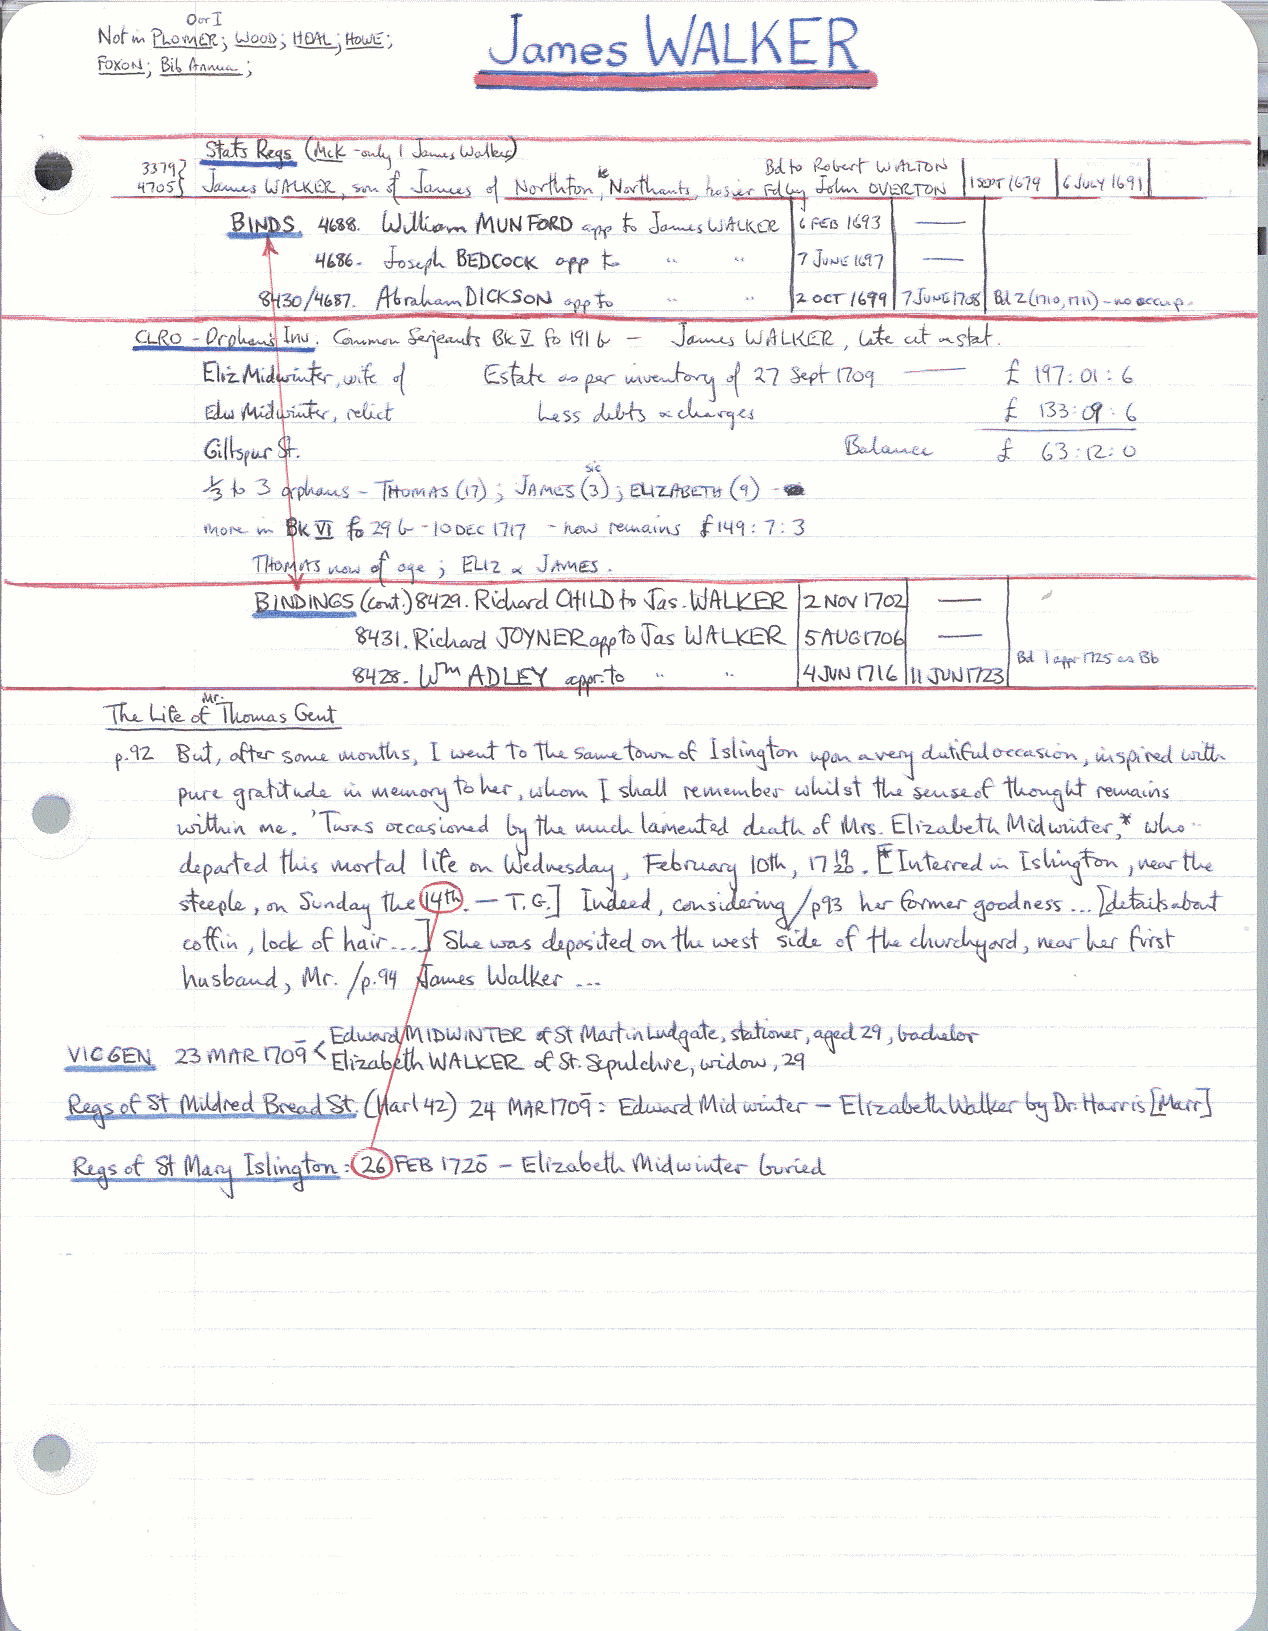 James WALKER
O or I
Not in PLOMER; WOOD; HEAL; HOWE;
FOXON; Bib Annua;
Stat's Regs (McK - only 1 James Walker)
3379} Bd to Robert WALTON
4705} James WALKER, son of James of Northton, Northants, hosier Fd by John OVERTON | 1 SEPT 1679 | 6 JULY 1691
BINDS. 4688. William MUNFORD app to James WALKER | 6 FEB 1693 | —
4686. Joseph BEDCOCK app to " " | 7 JUNE 1697 | —
8430/4687. Abraham DICKSON app to " " | 2 OCT 1699 | 7 JUNE 1708 | Bd 2 (1710, 1711) - no occup.
CLRO - Orphans Inv. Common Serjeants Bk V fo 191 b — James WALKER, late cit & stat.
Eliz Midwinter, wife of Estate as per inventory of 27 Sept 1709 — £ 197:01:6
Edw Midwinter, relict Less debts & charges £ 133:09:6
Giltspur St. Balance £ 63:12:0
sic
⅓ to 3 orphans - THOMAS (17); JAMES (3); ELIZABETH (9) -
more in Bk VI fo 29 b - 10 DEC 1717 - now remains £149:7:3
THOMAS now of age; ELIZ & JAMES.
BINDINGS (cont.) 8429. Richard CHILD to Jas. WALKER | 2 NOV 1702 | —
8431. Richard JOYNER app to Jas WALKER | 5 AUG 1706 | —
8428. Wm ADLEY appr. to " " | 4 JUN 1716 | 11 JUN 1723 | Bd 1 appr 1725 as Bb
The Life of Mr. Thomas Gent
p.92 But, after some months, I went to the same town of Islington upon a very dutiful occasion, inspired with
pure gratitude in memory to her, whom I shall remember whilst the sense of thought remains
within me. 'Twas occasioned by the much lamented death of Mrs. Elizabeth Midwinter,* who
departed this mortal life on Wednesday, February 10th, 17 19/20. [*Interred in Islington, near the
steeple, on Sunday the 14th. — T.G.] Indeed, considering /p93 her former goodness ... [details about
coffin, lock of hair....] She was deposited on the west side of the churchyard, near her first
husband, Mr. /p.94 James Walker ...
Edward MIDWINTER of St Martin Ludgate, stationer, aged 29, bachelor
VIC GEN 23 MAR 1709 <
Elizabeth WALKER of St. Sepulchre, widow, 29
Regs of St Mildred Bread St. (Harl 42) 24 MAR 1709: Edward Midwinter — Elizabeth Walker by Dr. Harris [Marr]
Regs of St Mary Islington: 26 FEB 1720 — Elizabeth Midwinter buried